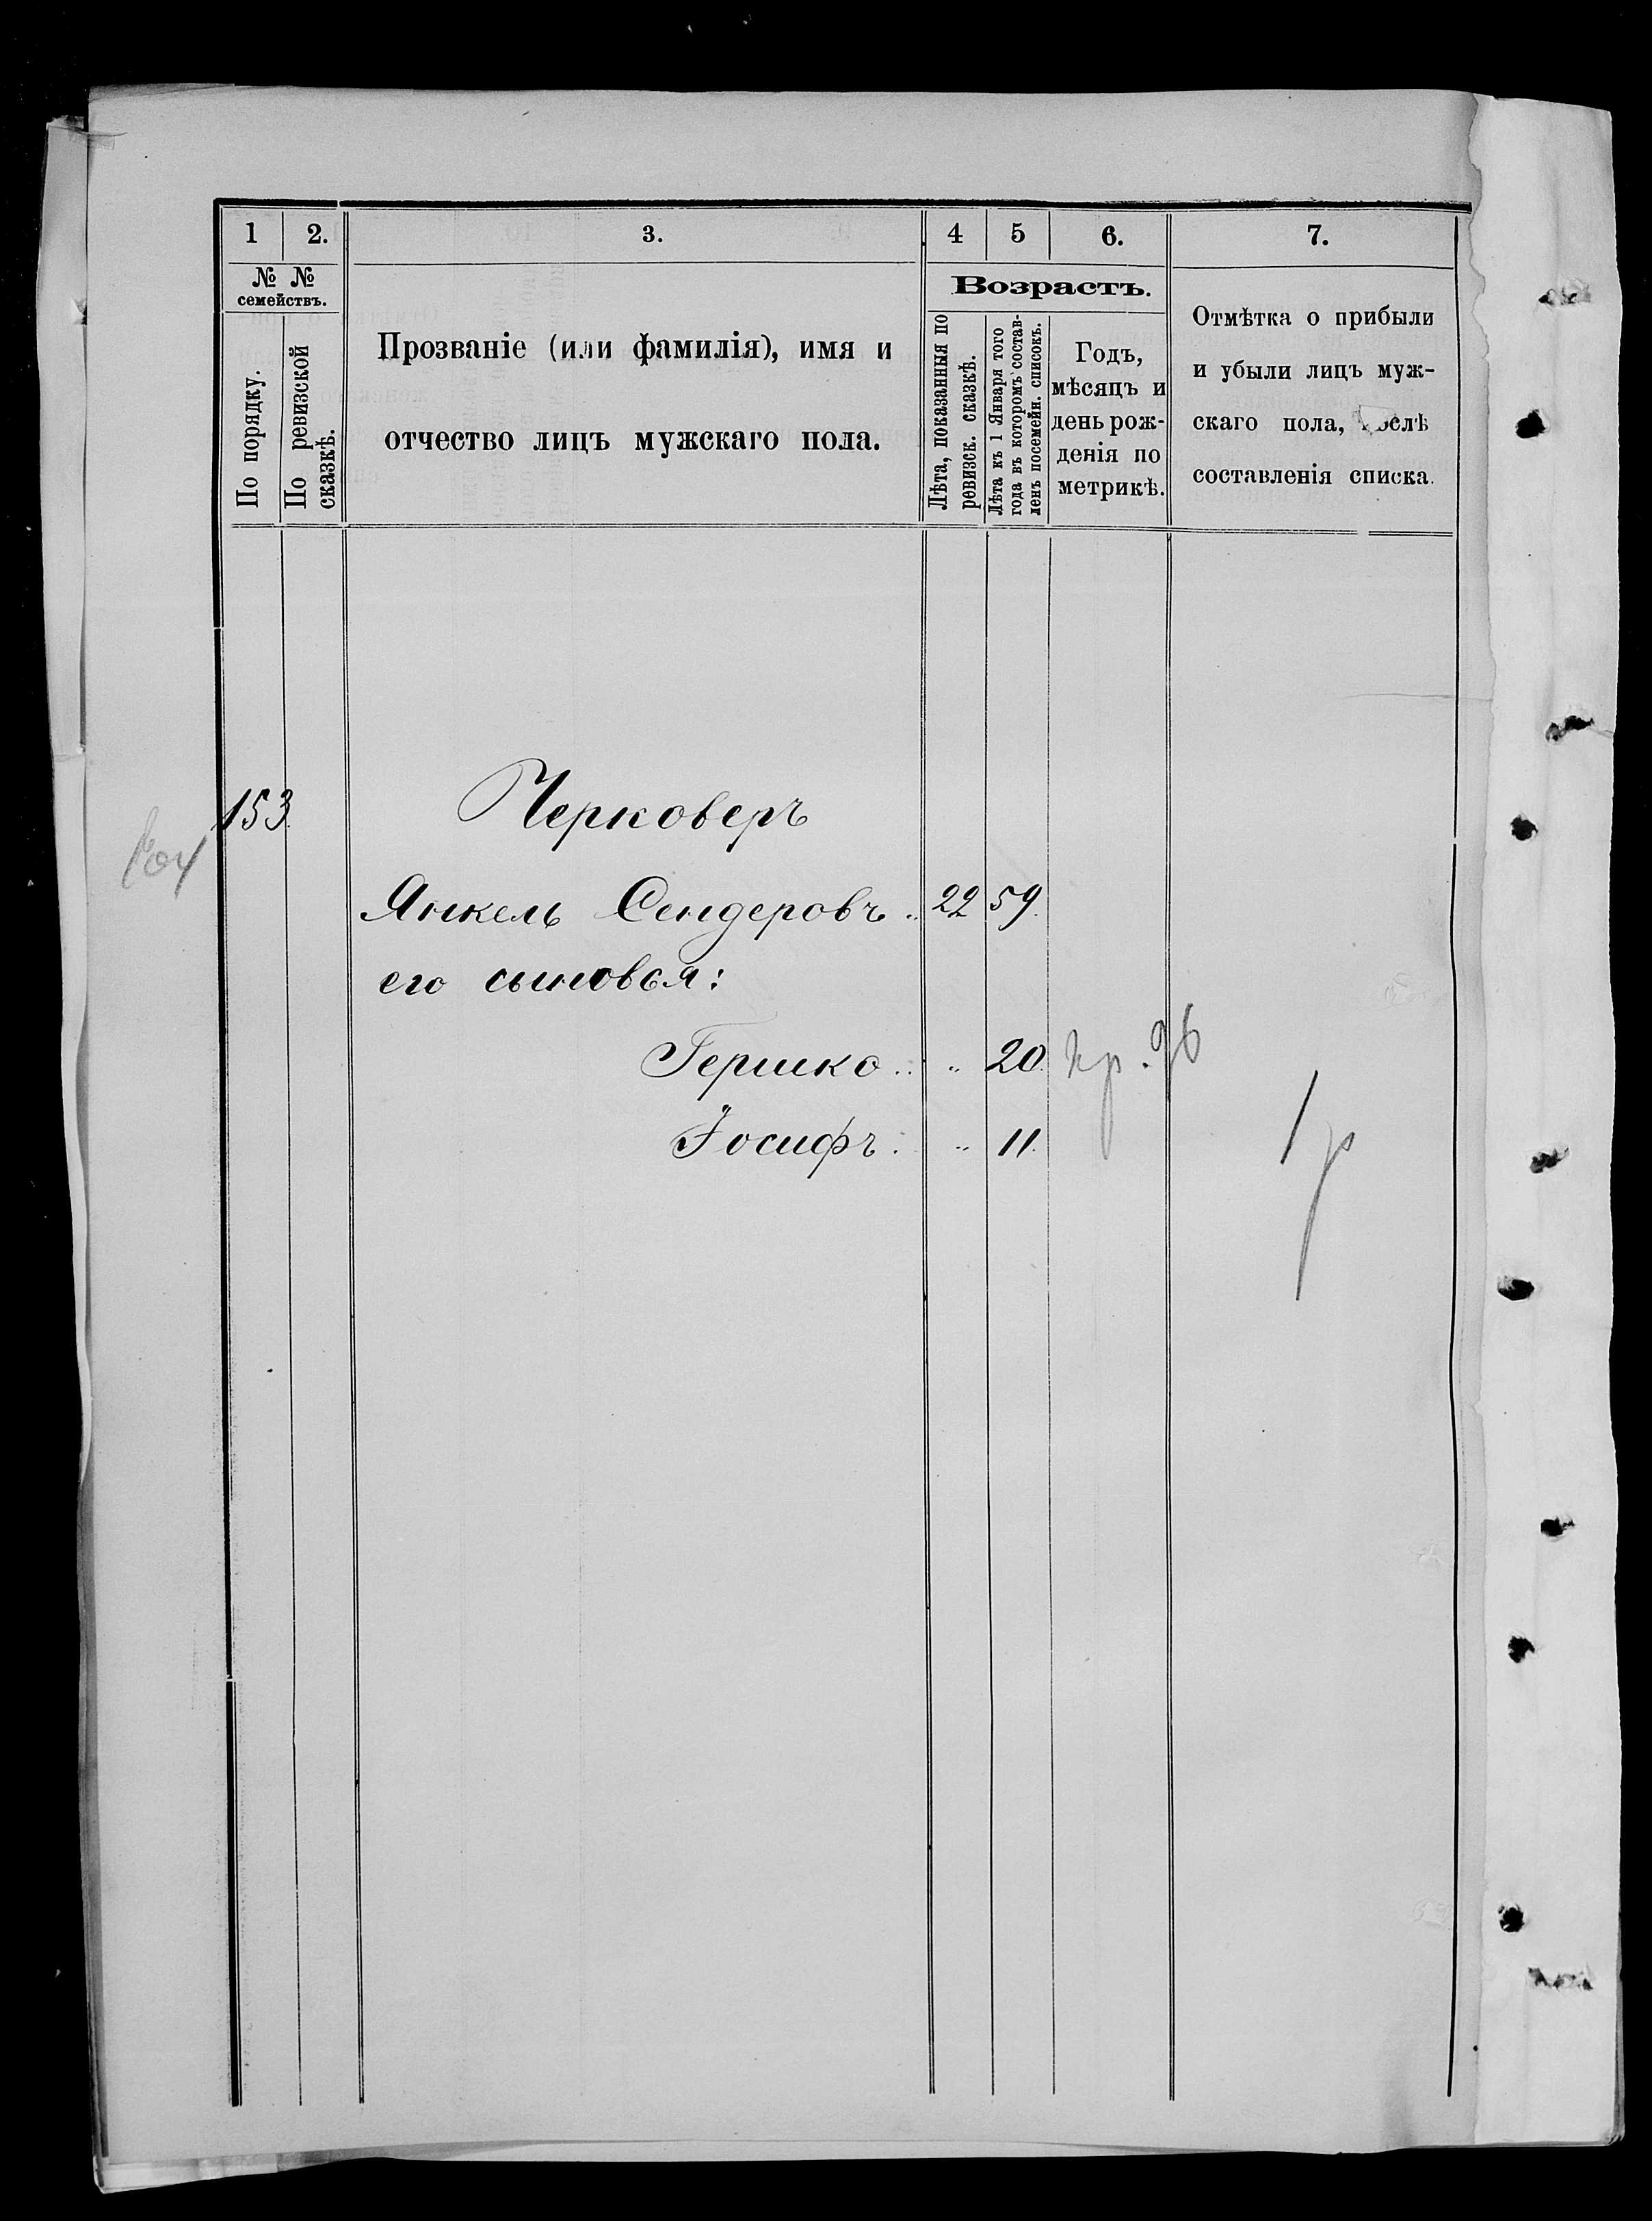 1 2. 3. 4 5 6. 7.
№ № семействъ.
По порядку.
По ревизской сказкѣ.
Прозваніе (или фамилія), имя и
отчество лицъ мужскаго пола.
Возрастъ.
Лѣта, показанныя по
ревизск. сказкѣ.
Лѣта къ 1 Января того
года въ которомъ состав-
ленъ посемейн. списокъ.
Годъ,
мѣсяцъ и
день рож-
денія по
метрикѣ.
Отмѣтка о прибыли
и убыли лицъ муж-
скаго пола, послѣ
составленія списка.
153. Черковеръ
Янкель Сендеровъ 22 59.
его сыновья:
Гершко " 20. пр. 96
Іосифъ " 11.